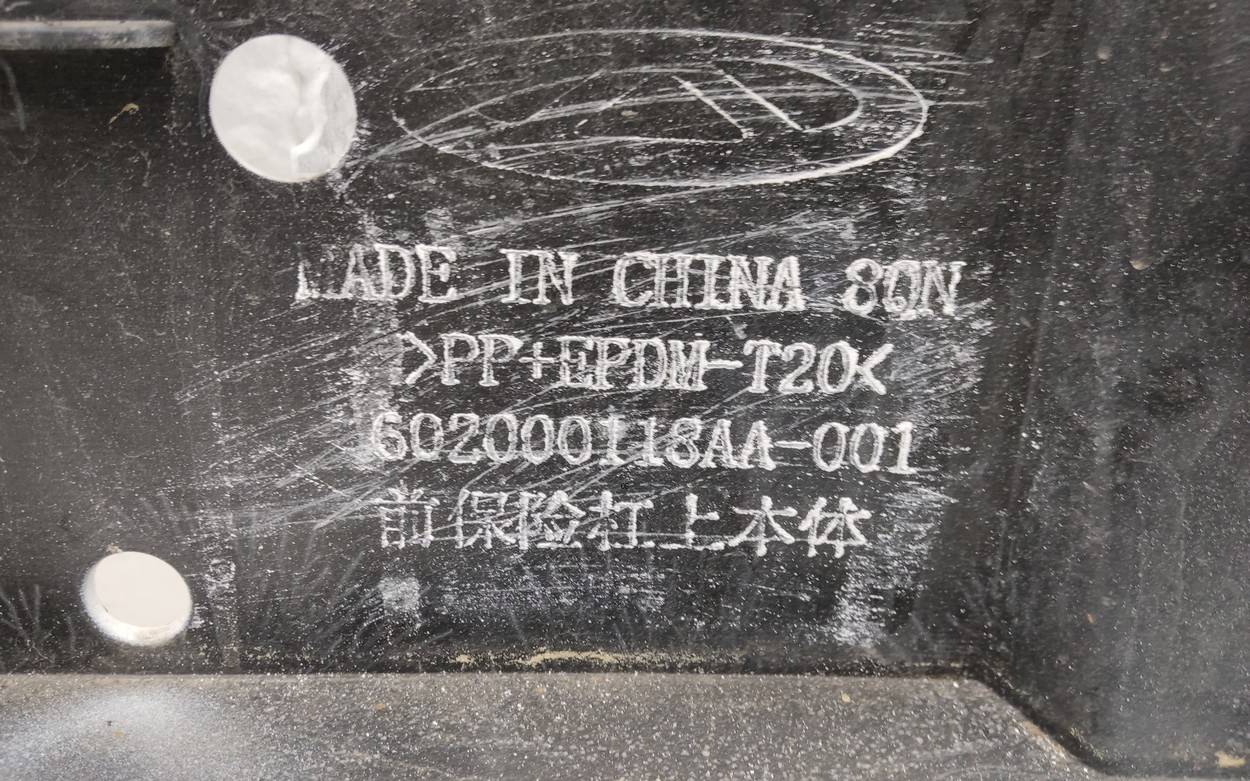 MADE IN CHINA 8QN
>PP+EPDM-T20<
602000118AA-001
前保险杠上本体